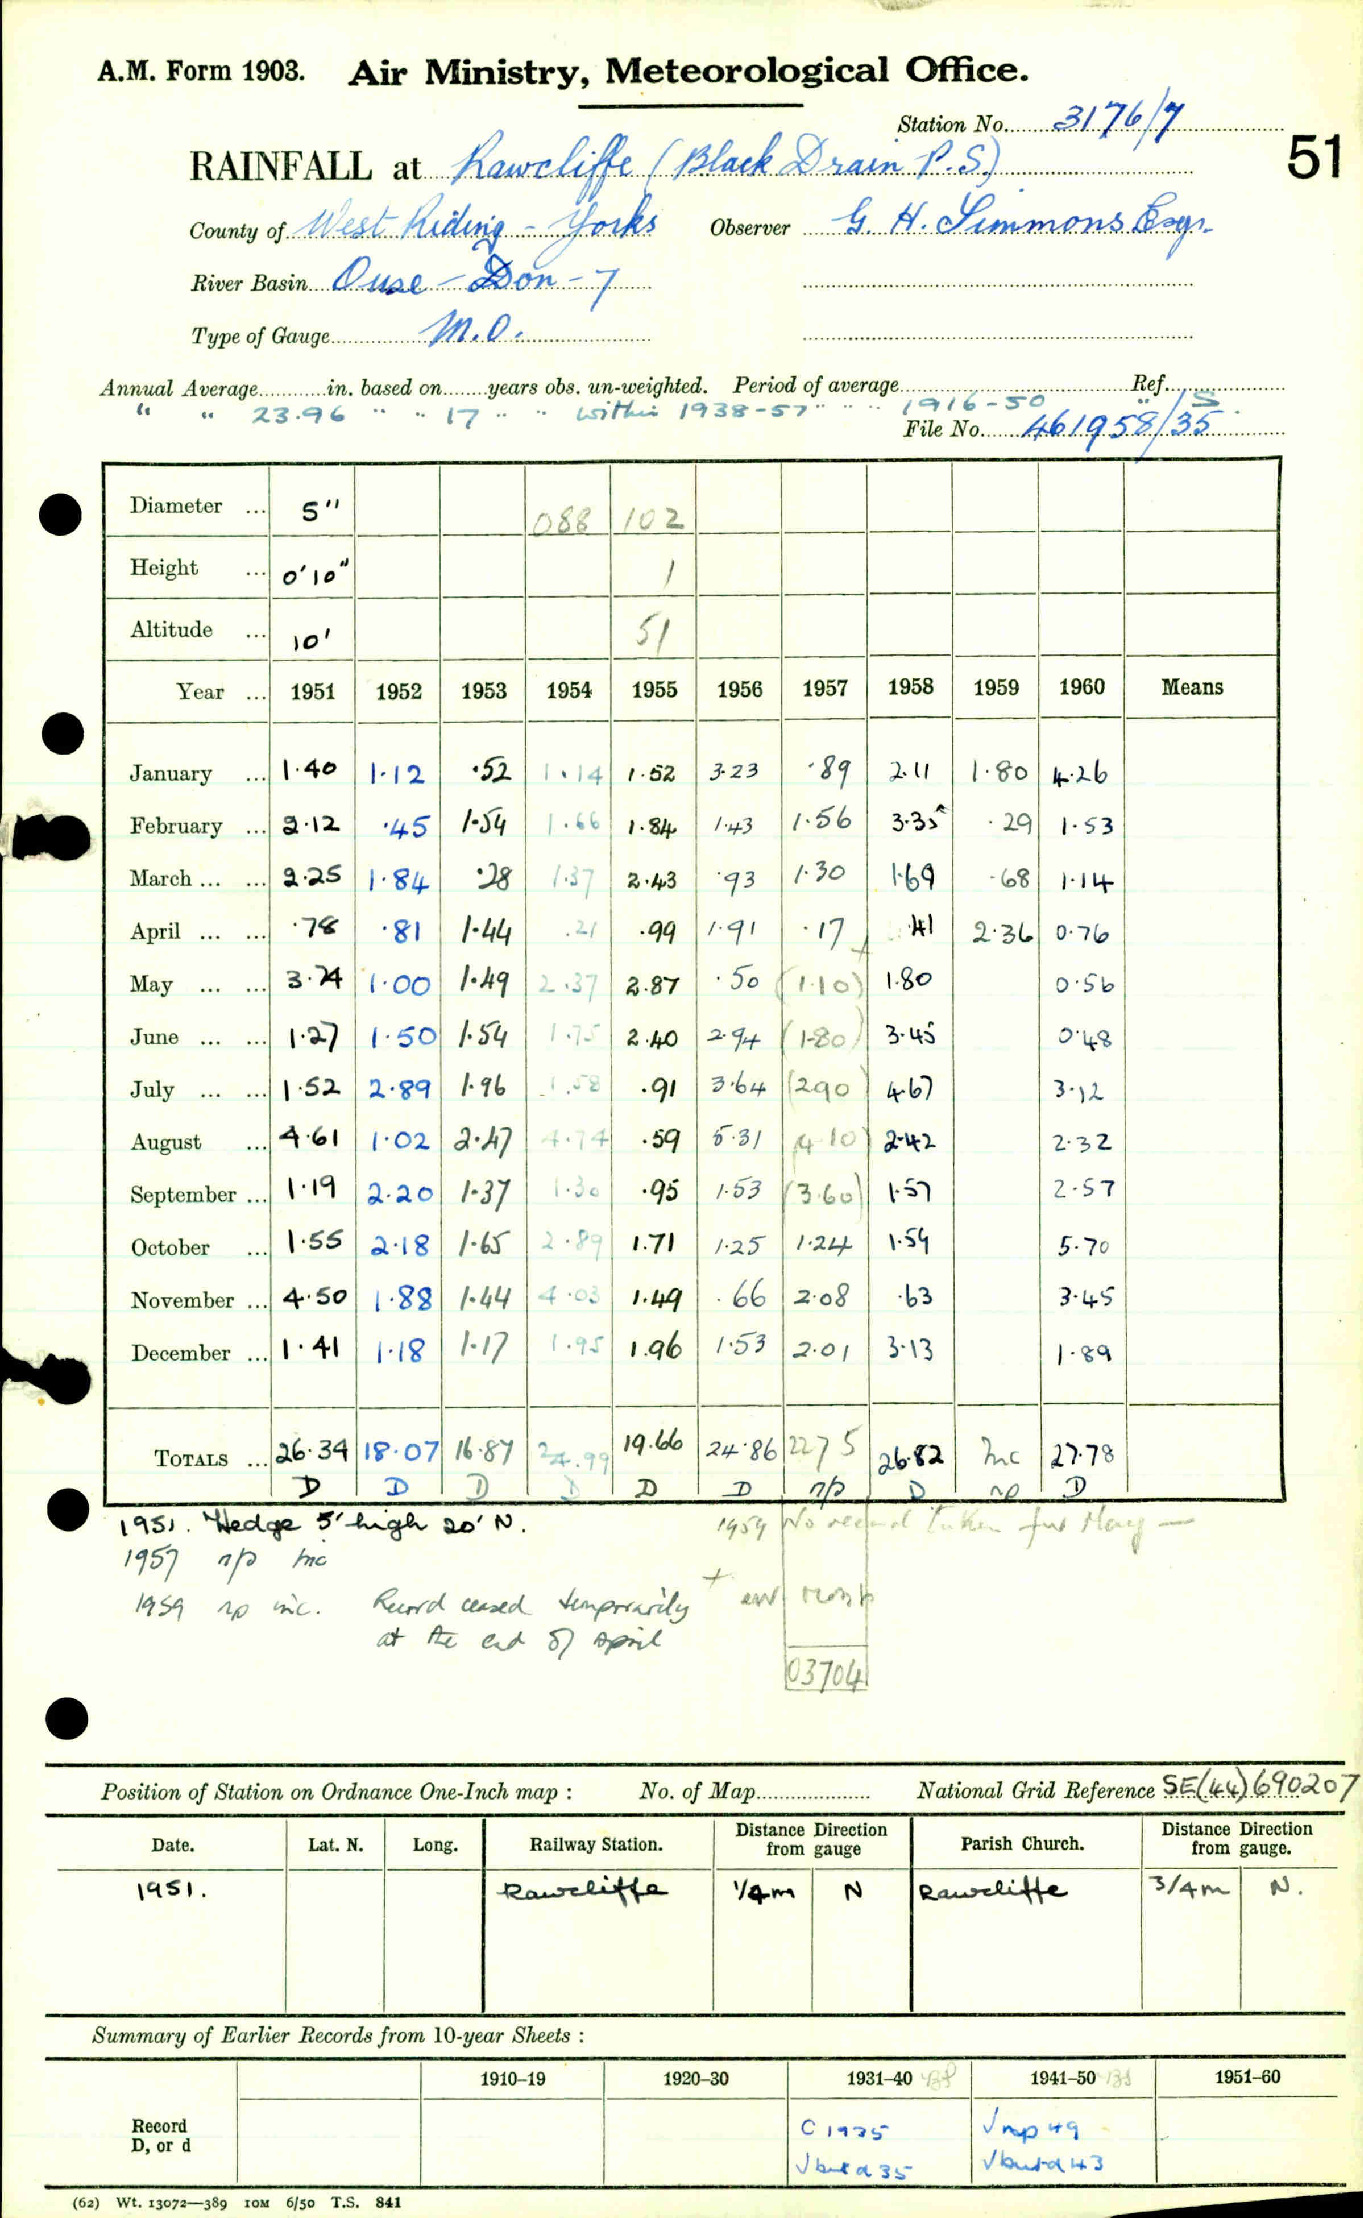 A.M. Form 1903. Air Ministry, Meteorological Office.
Station No. 3176/7
51
RAINFALL at Rawcliffe (Black Drain P.S)
County of West Riding - Yorks Observer G. H. Simmons Esqr.
River Basin Ouse - Don - 7
Type of Gauge M.O.
Annual Average in. based on years obs. un-weighted. Period of average Ref.
" " 23.96 " " 17 " " within 1938-57 " " " 1916-50 " /S
File No. 461958/35
Diameter ... 5" 088 102
Height ... 0'10" 1
Altitude ... 10' 51
Year ... 1951 1952 1953 1954 1955 1956 1957 1958 1959 1960 Means
January ... 1.40 1.12 .52 1.14 1.52 3.23 .89 2.11 1.80 4.26
February ... 2.12 .45 1.54 1.66 1.84 1.43 1.56 3.35 .29 1.53
March ... ... 2.25 1.84 .28 1.37 2.43 .93 1.30 1.69 .68 1.14
April ... ... .78 .81 1.44 .21 .99 1.91 .17 .41 2.36 0.76
May ... ... 3.74 1.00 1.49 2.37 2.87 .50 + (1.10) 1.80 0.56
June ... ... 1.27 1.50 1.54 1.75 2.40 2.94 (1.80) 3.45 0.48
July ... ... 1.52 2.89 1.96 1.58 .91 3.64 (2.90) 4.67 3.12
August ... 4.61 1.02 2.47 4.74 .59 5.31 (4.10) 2.42 2.32
September ... 1.19 2.20 1.37 1.30 .95 1.53 (3.60) 1.57 2.57
October ... 1.55 2.18 1.65 2.89 1.71 1.25 1.24 1.59 5.70
November ... 4.50 1.88 1.44 4.03 1.49 .66 2.08 .63 3.45
December ... 1.41 1.18 1.17 1.95 1.96 1.53 2.01 3.13 1.89
TOTALS ... 26.34 18.07 16.87 24.99 19.66 24.86 22.75 26.82 Inc 27.78
D D D D D D n/p D np D
1951. Hedge 5' high 20' N. 1959 No record taken for May —
1957 n/p Inc
1959 np inc. Record ceased temporarily + est
at the end of April
03704
Position of Station on Ordnance One-Inch map : No. of Map National Grid Reference SE(44)690207
Date. Lat. N. Long. Railway Station. Distance from gauge Direction Parish Church. Distance from gauge. Direction
1951. Rawcliffe 1/4m N Rawcliffe 3/4m N.
Summary of Earlier Records from 10-year Sheets :
1910–19 1920–30 1931–40 1941–50 1951–60
Record C 1935 √ np 49
D, or d
(62) Wt. 13072—389 10M 6/50 T.S. 841